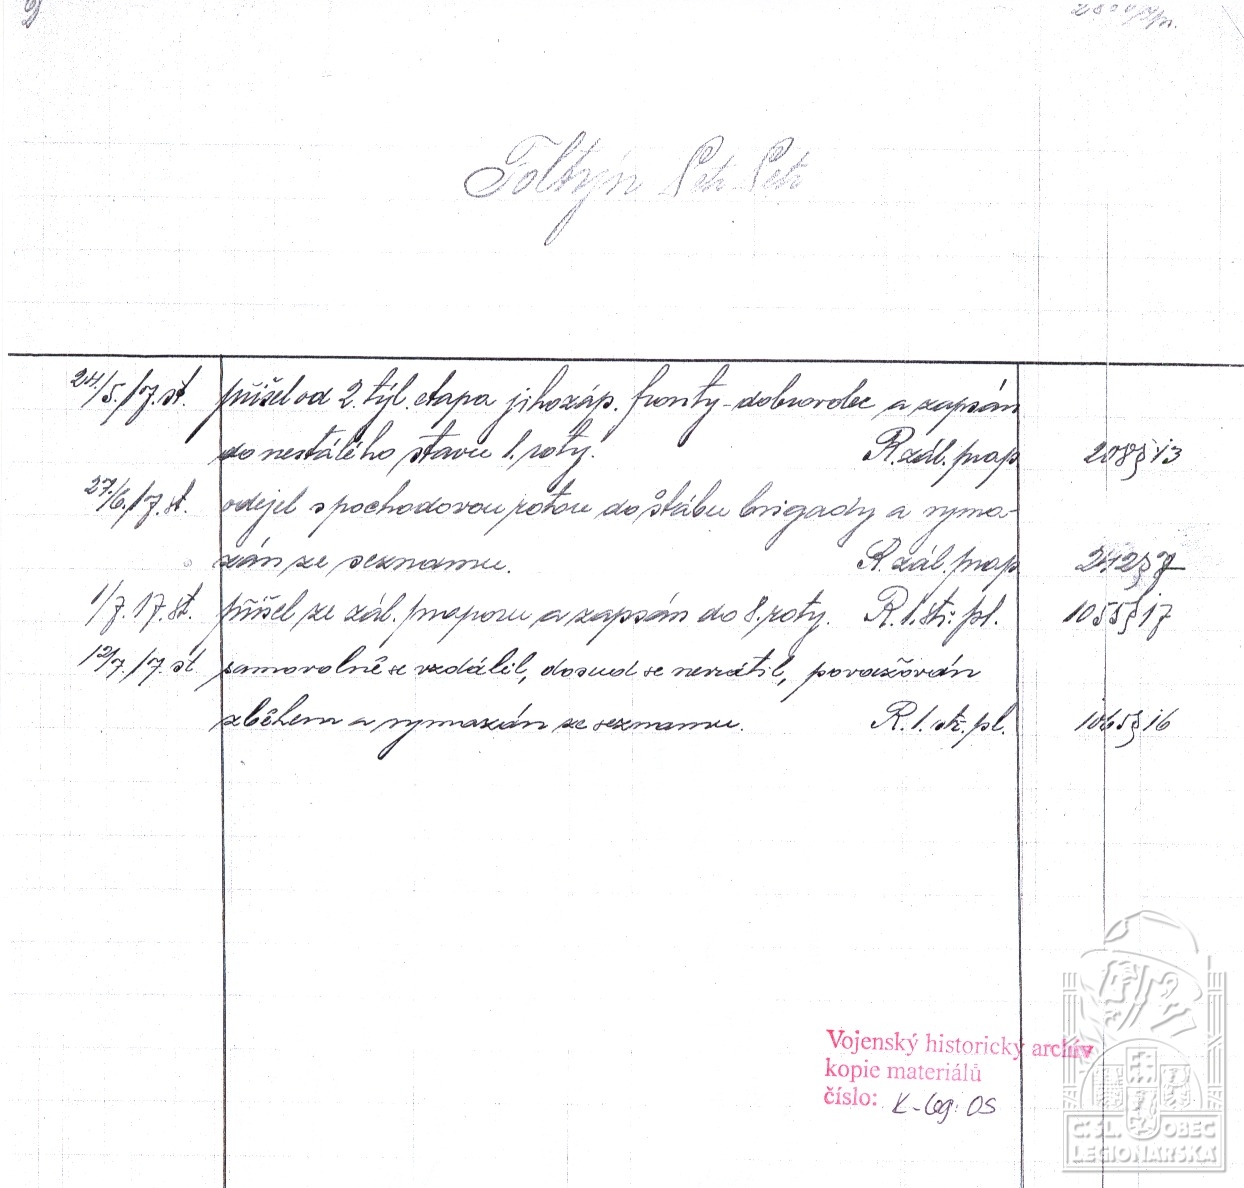 Foltýn Petr Petr
24./5./17. st. přišel od 2. týl. etapa jihozáp. fronty - dobrovolec a zapsán
do nestálého stavu 1. roty. R. zál. prap. 208 § 13
27./6./17. st. odejel s pochodovou rotou do štábu brigády a vyma-
zán ze seznamu. R. zál. prap. 242 § 7
1/7. 17. st. přišel ze zál. praporu a zapsán do 8. roty. R. 1. stř. pl. 1055 § 17
12/7. 17. st. samovolně se vzdálil, dosud se nevrátil, považován
zběhem a vymazán ze seznamu. R. 1. stř. pl. 1065 § 16
Vojenský historický archiv
kopie materiálů
číslo: K-leg. OS
ČSL. OBEC
LEGIONÁŘSKÁ